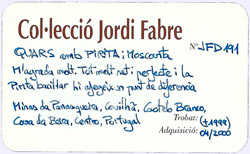 Col·lecció Jordi Fabre
QUARS amb PIRITA i Moscovita Nº JFD191
M'agrada molt. Tot molt net i perfecte i la
Pirita bacillar hi afegeix un punt de diferència
Minas da Panasqueira, Covilhã, Castelo Branco,
Cova da Beira, Centro, Portugal
Trobat: (±1999)
Adquisició: 04/2000